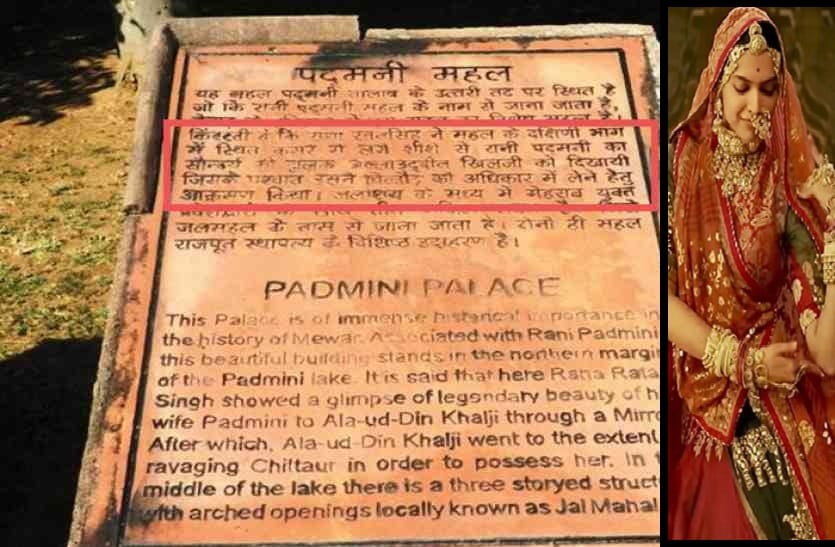 पदमनी महल
यह महल पदमनी तालाब के उत्तरी तट पर स्थित है
जो कि रानी पदमनी महल के नाम से जाना जाता है,
किंवदंती है कि राणा रतनसिंह ने महल के दक्षिणी भाग
में स्थित कमरे में लगे शीशे से रानी पदमनी का
सौन्दर्य की झलक अलाउद्दीन खिलजी को दिखायी
जिसके पश्चात उसने चित्तौड़ को अधिकार में लेने हेतु
आक्रमण किया। जलाशय के मध्य में मेहराब युक्त
जलमहल के नाम से जाना जाता है। दोनो ही महल
राजपूत स्थापत्य के विशिष्ठ उदाहरण है।
PADMINI PALACE
This Palace is of immense historical importance in
the history of Mewar. Associated with Rani Padmini
this beautiful building stands in the northern margin
of the Padmini lake. It is said that here Rana Rata
Singh showed a glimpse of legendary beauty of h
wife Padmini to Ala-ud-Din Khalji through a Mirro
After which, Ala-ud-Din Khalji went to the extent
ravaging Chittaur in order to possess her. In
middle of the lake there is a three storyed struct
with arched openings locally known as Jal Mahal